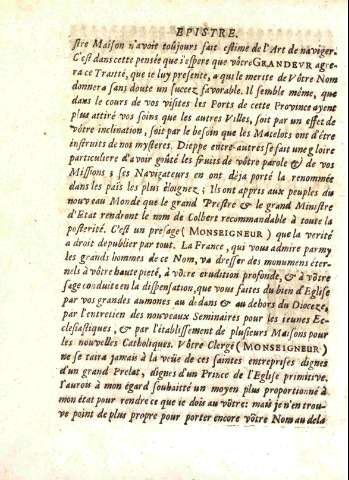 EPISTRE.
stre Maison n'avoit toûjours fait estime de l'Art de naviger.
C'est dans cette pensée que i'espere que vôtre GRANDEUR agre-
ra ce Traitté, que ie luy presente, & que le merite de Vôtre Nom
donnera sans doute un succez favorable. Il semble même, que
dans le cours de vos visites les Ports de cette Province ayent
plus attiré vos soins que les autres Villes, soit par un effet de
vôtre inclination, soit par le besoin que les Matelots ont d'être
instruits de nos mysteres. Dieppe entre-autres se fait une gloire
particuliere d'avoir goûté les fruits de vôtre parole & de vos
Missions; ses Navigateurs en ont déja porté la renommée
dans les païs les plus éloignez; Ils ont appris aux peuples du
nouveau Monde que le grand Prestre & le grand Ministre
d'Etat rendront le nom de Colbert recommandable à toute la
posterité. C'est un presage (MONSEIGNEUR) que la verité
a droit de publier par tout. La France, qui vous admire parmy
les grands hommes de ce Nom, va dresser des monumens éter-
nels à vôtre haute pieté, à vôtre erudition profonde, & à vôtre
sage conduite en la dispensation, que vous faites du bien d'Eglise
par vos grandes aumones au dedans & au dehors du Dioceze,
par l'entretien des nouveaux Seminaires pour les ieunes Ec-
clesiastiques, & par l'établissement de plusieurs Maisons pour
les nouvelles Catholiques. Vôtre Clergé (MONSEIGNEUR)
ne se taira jamais à la vüe de ces saintes entreprises dignes
d'un grand Prelat, dignes d'un Prince de l'Eglise primitive.
I'aurois à mon égard souhaitté un moyen plus proportionné à
mon état pour rendre ce que ie dois au vôtre: mais je n'en trou-
ve point de plus propre pour porter encore vôtre Nom au delà